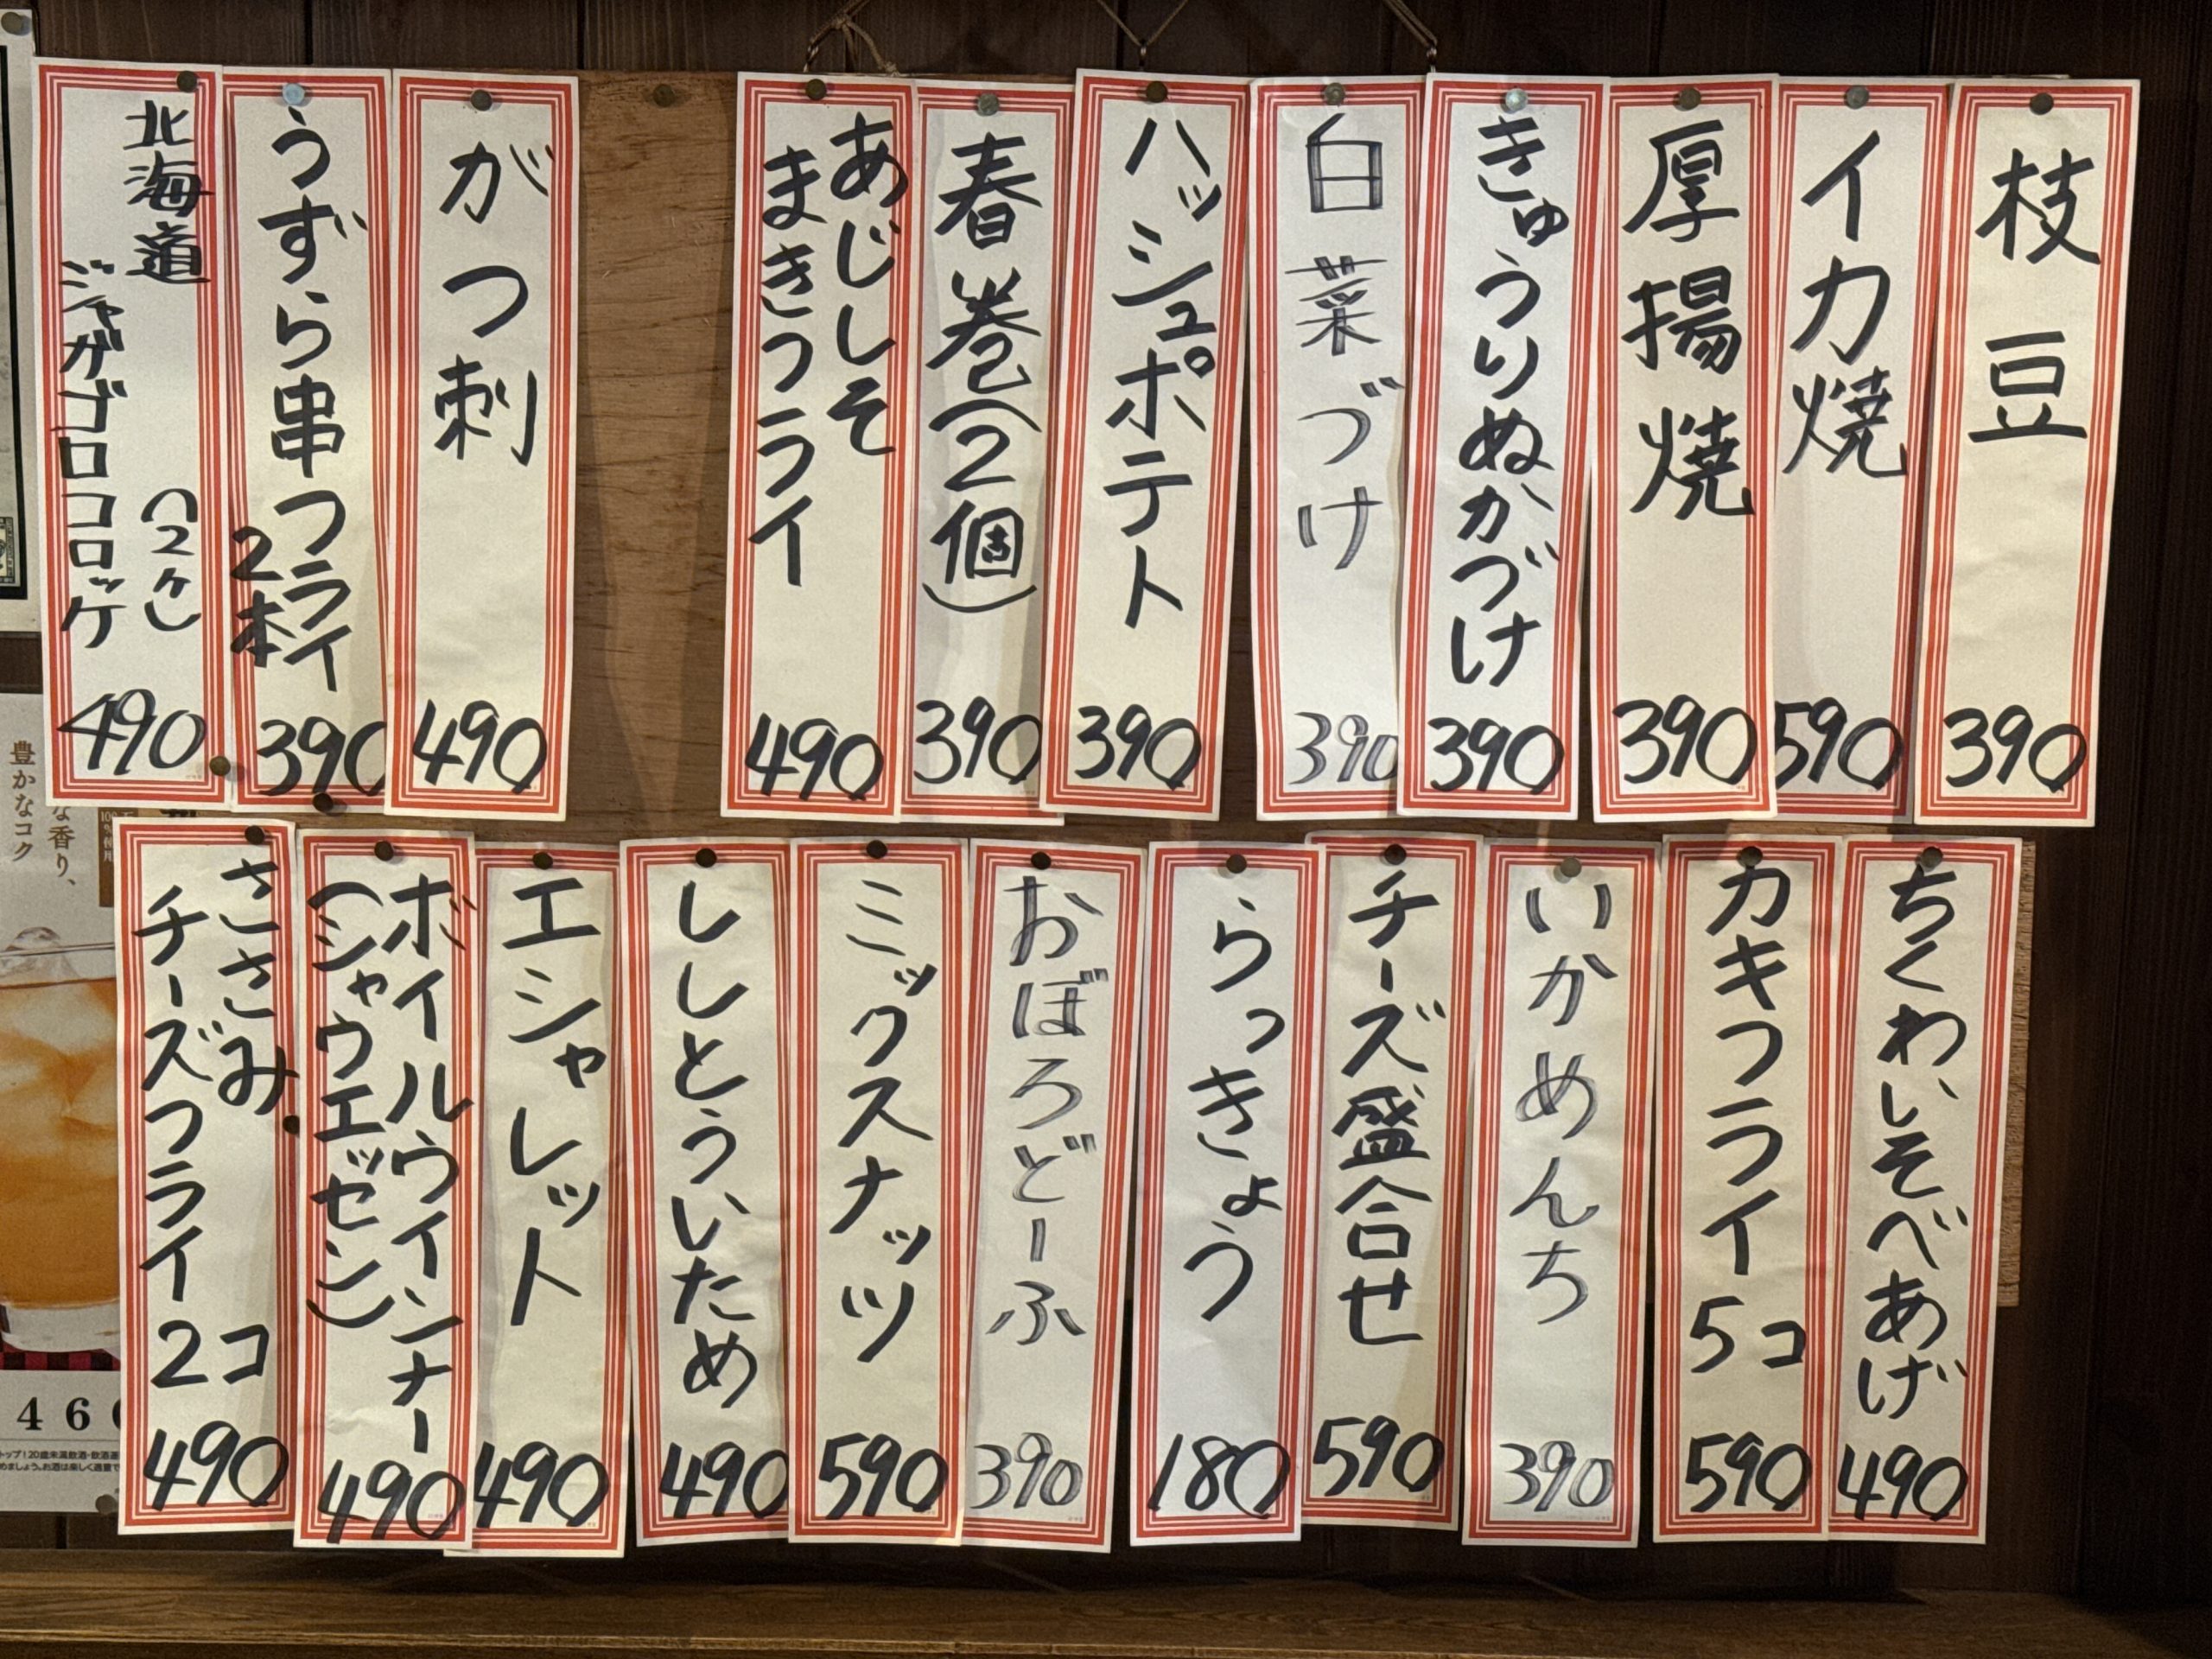 枝豆
390
イカ焼
590
厚揚焼
390
きゅうりぬかづけ
390
白菜づけ
390
ハッシュポテト
390
春巻(2個)
390
あじしそ
まきフライ
490
がつ刺
490
うずら串フライ
2本
390
北海道
ジャガゴロコロッケ
(2ケ)
490
ちくわいそべあげ
490
カキフライ5コ
590
いかめんち
390
チーズ盛合せ
590
らっきょう
180
おぼろどーふ
390
ミックスナッツ
590
ししとういため
490
エシャレット
490
ボイルウインナー
(シャウエッセン)
490
ささみ
チーズフライ2コ
490
な香り、
豊かなコク